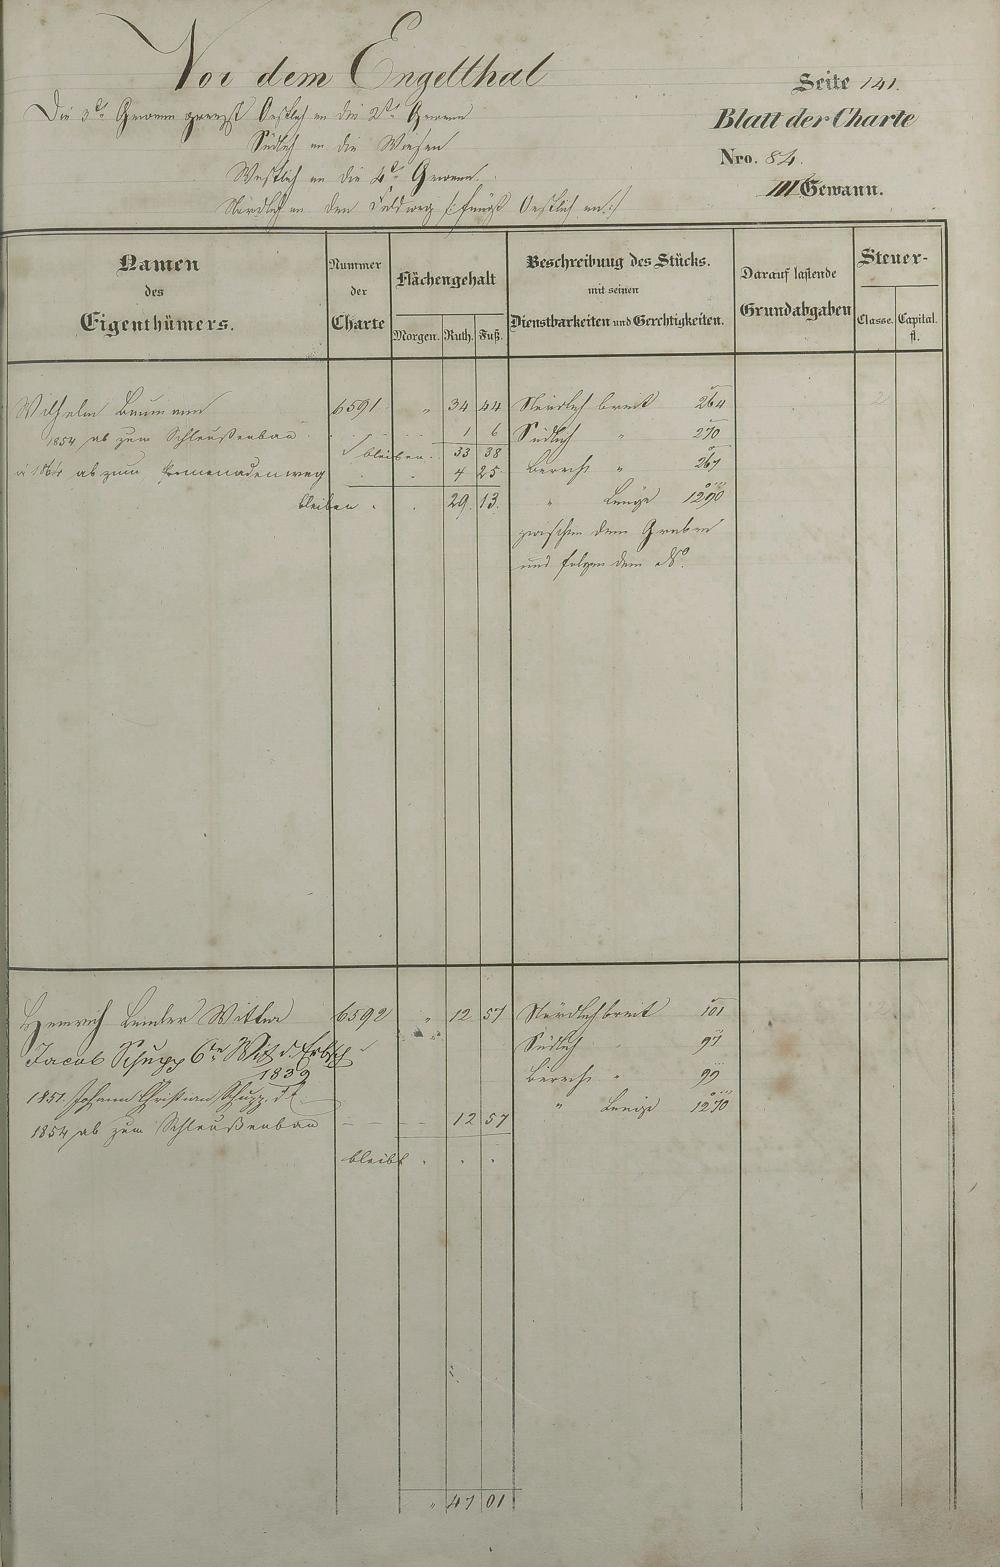 Vor dem Engelthal
Seite 141.
Die 3te Gewann grenzt Oestlich an die 2te Gewann
Blatt der Charte
Südlich an die Wiesen
Nro. 84.
Westlich an die 4te Gewann.
III Gewann.
Nördlich an den Feldweg /: fängt Oestlich an :/
Namen des Eigenthümers.
Nummer der Charte
Flächengehalt
Morgen. Ruth. Fuß.
Beschreibung des Stücks.
mit seinen
Dienstbarkeiten und Gerechtigkeiten.
Darauf lastende
Grundabgaben
Steuer-
Classe. Capital.
fl.
Wilhelm Baumann 6591 " 34 44 Nördlich breit 264
1854 ab zum Schleußenbau 1 6 Südlich " 270
bleiben 33 38
ab zum Promenadenweg 4 25 Berecht " 267
bleiben 29. 13. " Länge 1290
zwischen dem Graben
und folgendem No.
Heinrich Wittwe 6592 " 12 57 Nördlich breit 101
Jacob Schupp 6te Wit. d. Erbsch Südlich 97
1839 Berecht " 99
1851. Johann Christian Schupp. " Länge 1270
1854 ab zum Schleußenbau 12 57
bleibt . . .
" 47 01